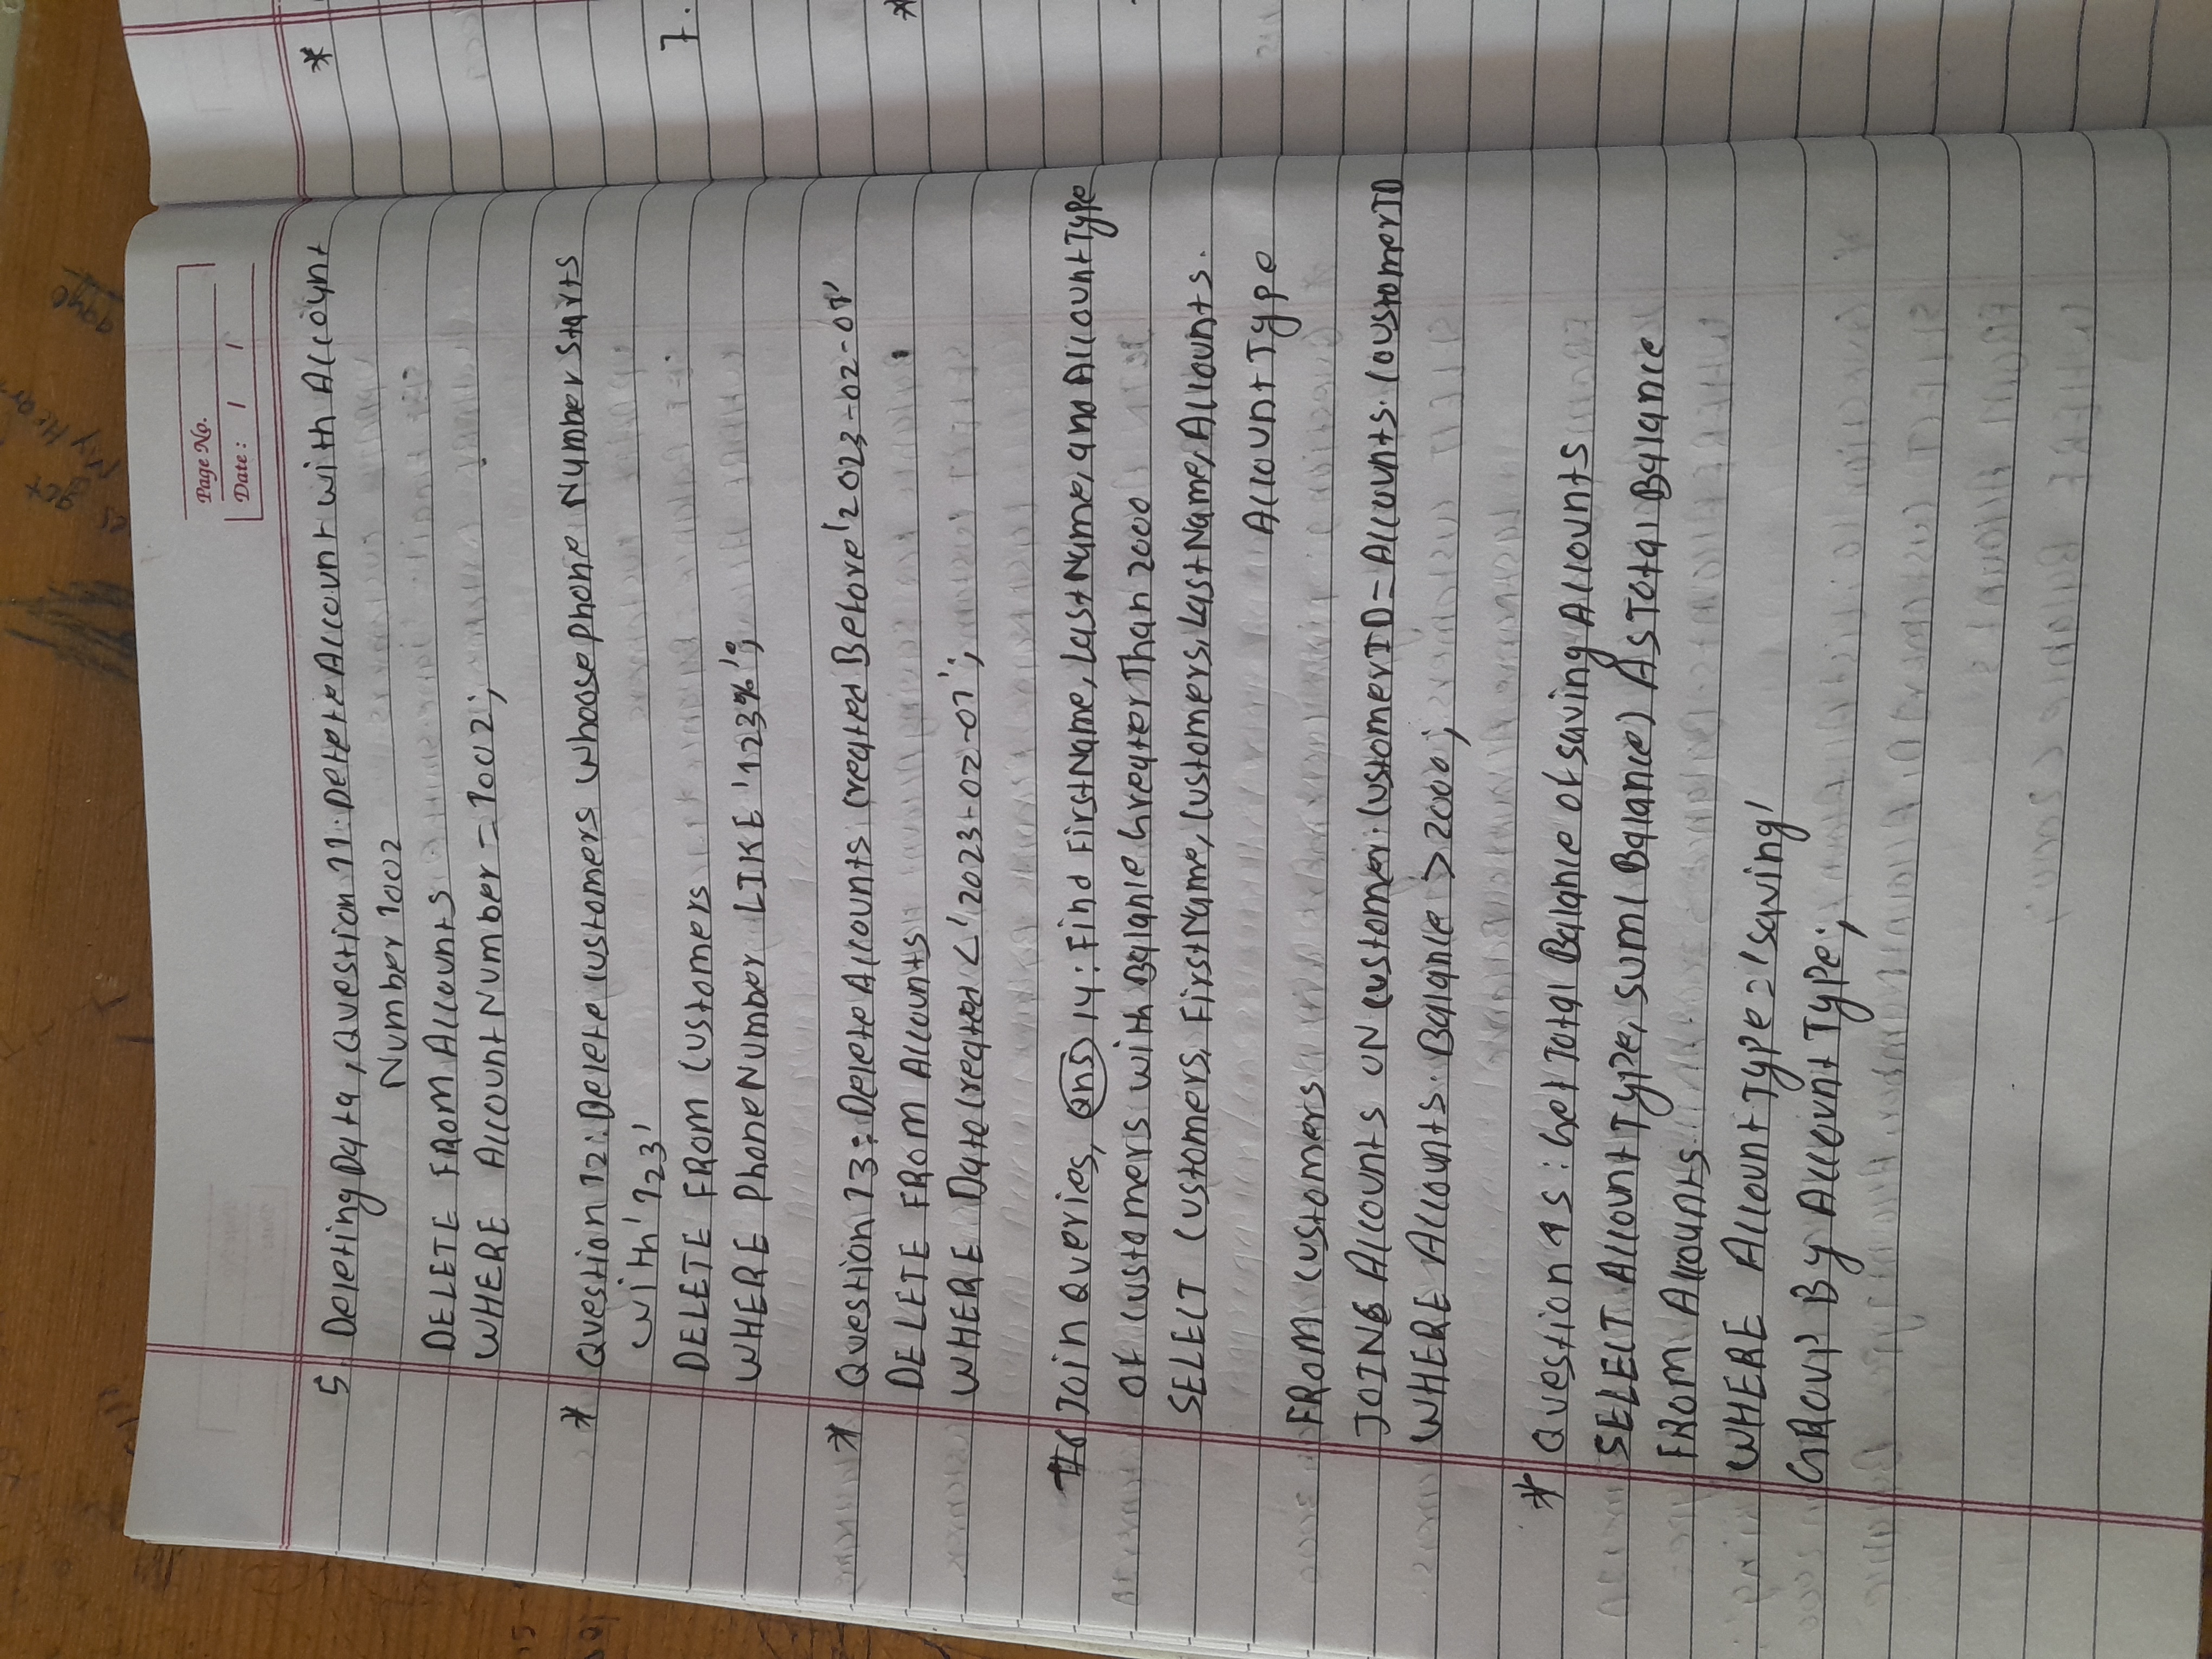 Page No.
Date : / /
5. Deleting Data, Question 11: Delete Account with Account
Number 1002
DELETE FROM Accounts
WHERE AccountNumber = 1002;
* Question 12: Delete Customers Whoose phone Number Starts
with '123'
DELETE FROM Customers
WHERE PhoneNumber LIKE '123%';
* Question 13: Delete Accounts Created Before '2023-02-01'
DELETE FROM Accounts
WHERE DateCreated < '2023-02-01';
#6 Join Queries, Qns 14: Find FirstName, LastName, and AccountType
of Customers with Balance Greater Than 2000
SELECT Customers, FirstName, Customers, LastName, Accounts.
AccountType
FROM Customers
JOING Accounts ON Customer.CustomerID = Accounts.CoustomerID
WHERE Accounts.Balance > 2000;
* Question 15: Get Total Balance of Saving Accounts
SELECT AccountType, SUM( Balance) As Total Balance
FROM Accounts
WHERE AccountType = 'saving'
GROUP By AccountType;
*
7.
*